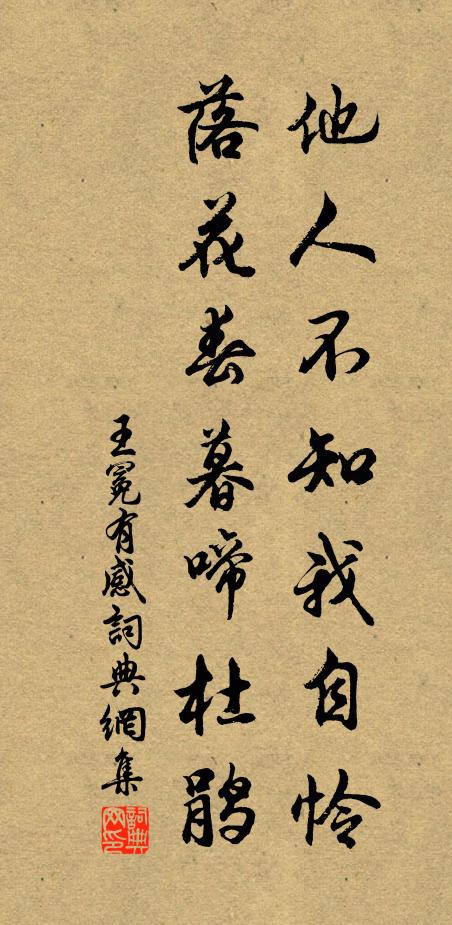 他人不知我自怜
落花春暮啼杜鹃
王冕有感詞典網集
詞典网印